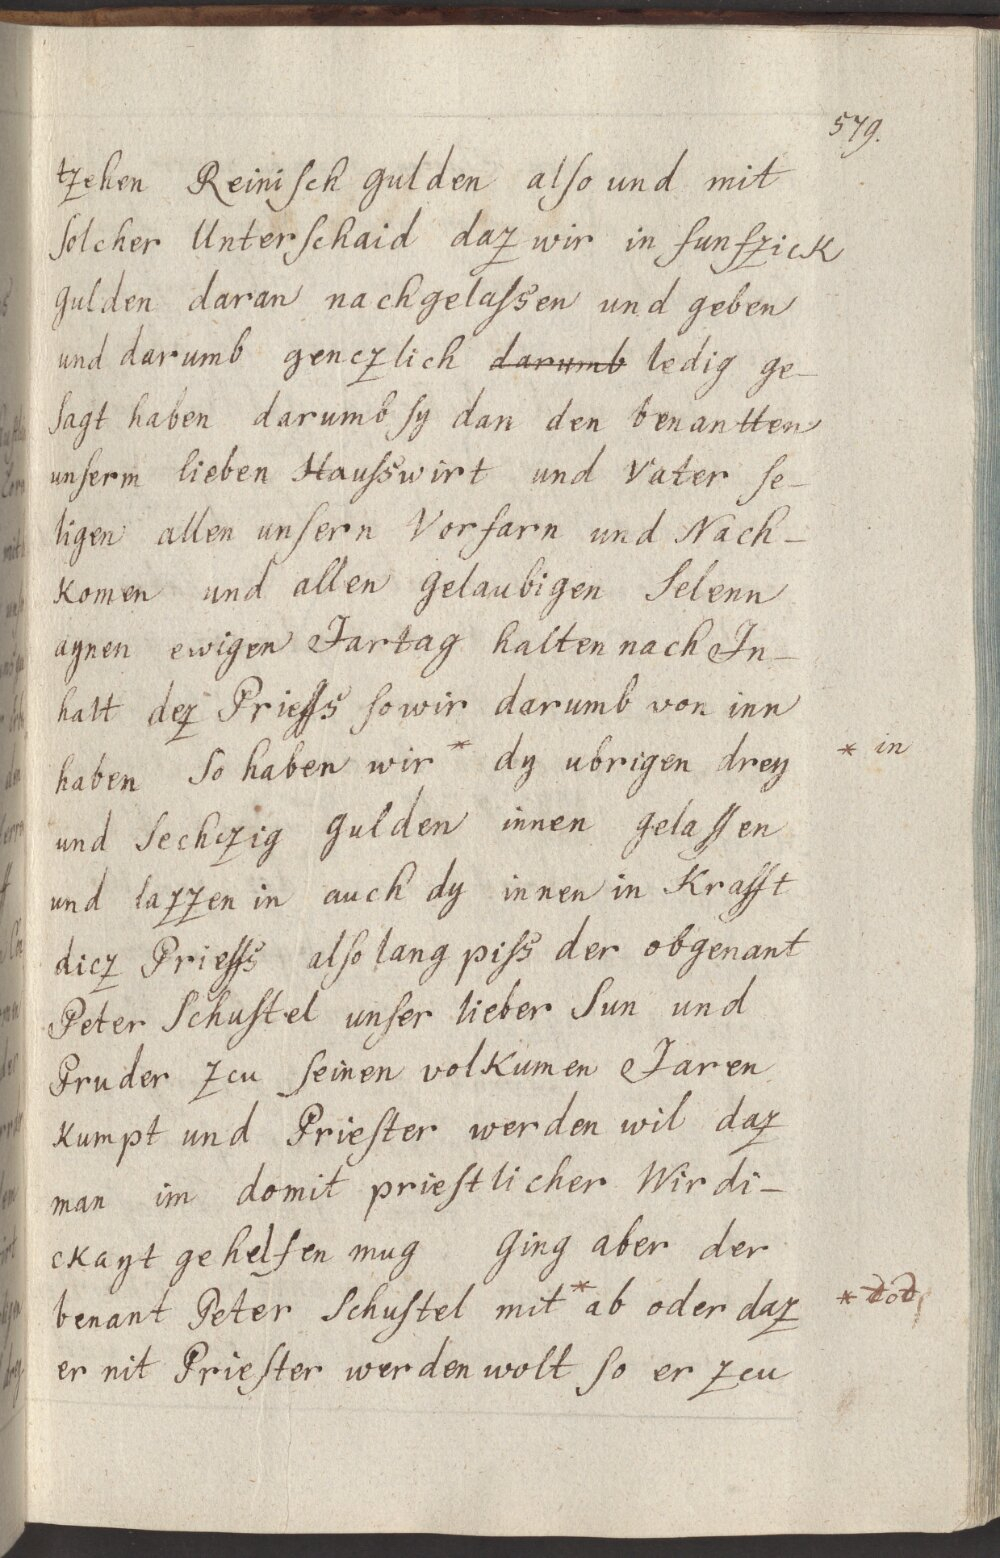 579.
tzehen Reinisch gulden also und mit
solcher Unterschaid daz wir in funfzick
gulden daran nachgelassen und geben
und darumb genczlich darumb ledig ge-
sagt haben darumb sy dan den benantten
unserm lieben Hausswirt und Vater se-
ligen allen unsern Vorfarn und Nach-
komen und allen gelaubigen Selenn
aynen ewigen Jartag halten nach In-
halt dez Prieffs so wir darumb von inn
haben So haben wir * dy ubrigen drey * in
und Sechczig gulden innen gelassen
und lazzen in auch dy innen in Krafft
dicz Prieffs also lang piss der obgenant
Peter Schustel unser lieber Sun und
Pruder zcu seinen volkumen Jaren
kumpt und Priester werden wil daz
man im domit priestlicher Wirdi-
ckayt gehelfen mug Ging aber der
benant Peter Schustel mit * ab oder daz * Tod
er nit Priester werden wolt so er zcu